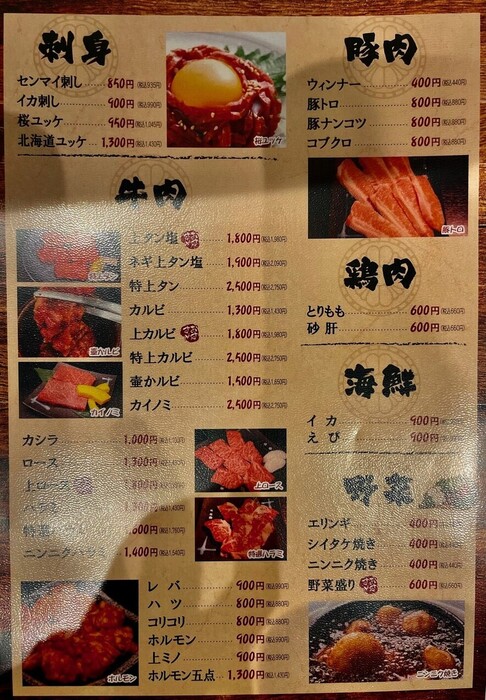 刺身
センマイ刺し 850円(税込935円)
イカ刺し 900円(税込990円)
桜ユッケ 950円(税込1,045円)
北海道ユッケ 1,300円(税込1,430円)
桜ユッケ
牛肉
上タン塩 1,800円(税込1,980円)
ネギ上タン塩 1,900円(税込2,090円)
特上タン 2,500円(税込2,750円)
カルビ 1,300円(税込1,430円)
上カルビ 1,800円(税込1,980円)
特上カルビ 2,500円(税込2,750円)
壺かルビ 1,500円(税込1,650円)
カイノミ 2,500円(税込2,750円)
特上タン
壺かルビ
カイノミ
カシラ 1,000円(税込1,100円)
ロース 1,300円(税込1,430円)
上ロース 1,800円
ハラミ 1,300円
特選ハラミ 1,600円(税込1,760円)
ニンニクハラミ 1,400円(税込1,540円)
上ロース
特選ハラミ
レバ 900円(税込990円)
ハツ 800円(税込880円)
コリコリ 800円(税込880円)
ホルモン 900円(税込990円)
上ミノ 900円(税込990円)
ホルモン五点 1,300円(税込1,430円)
ホルモン
豚肉
ウィンナー 400円(税込440円)
豚トロ 800円(税込880円)
豚ナンコツ 800円(税込880円)
コブクロ 800円(税込880円)
豚トロ
鶏肉
とりもも 600円(税込660円)
砂肝 600円(税込660円)
海鮮
イカ 900円
えび 900円
野菜
エリンギ 400円
シイタケ焼き 400円(税込440円)
ニンニク焼き 400円(税込440円)
野菜盛り 600円(税込660円)
ニンニク焼き